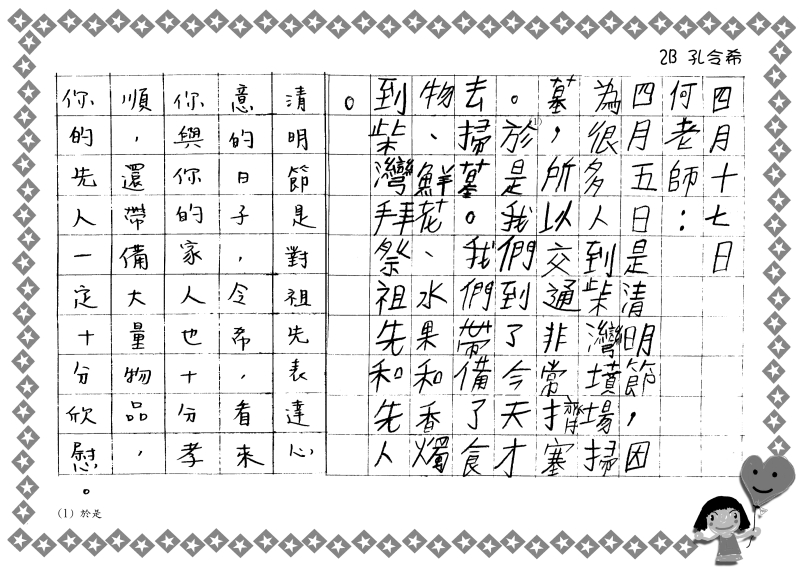 2B 孔令希
四月十七日
何老師：
四月五日是清明節，因
為很多人到柴灣墳場掃
墓，所以交通非常擠塞
。於(1)是我們到了今天才
去掃墓。我們帶備了食
物、鮮花、水果和香燭
到柴灣拜祭祖先和先人
。
清明節是對祖先表達心
意的日子，令希，看來
你與你的家人也十分孝
順，還帶備大量物品，
你的先人一定十分欣慰。
(1) 於是